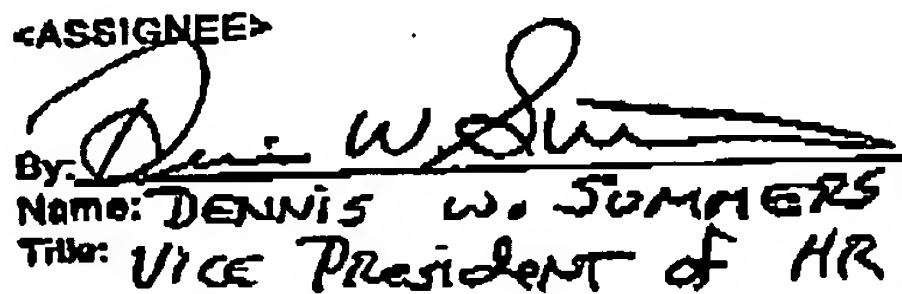 <ASSIGNEE>
By: Dennis W. Sommers
Name: DENNIS W. SOMMERS
Title: VICE PResideNT of HR